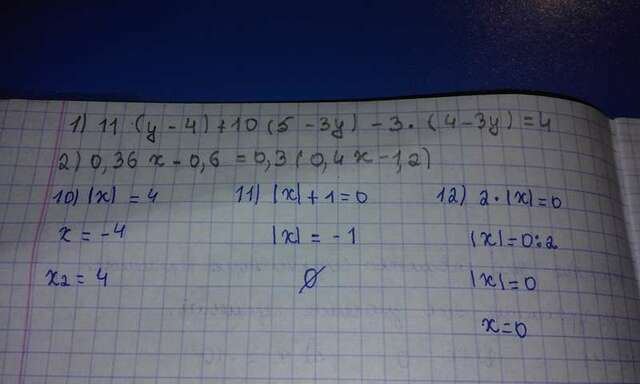 1) 11·(y-4)+10(5-3y)-3·(4-3y)=4
2) 0,36x-0,6=0,3(0,4x-1,2)
10) |x|=4 11) |x|+1=0 12) 2·|x|=0
x=-4 |x|=-1 |x|=0:2
x2=4 ∅ |x|=0
x=0